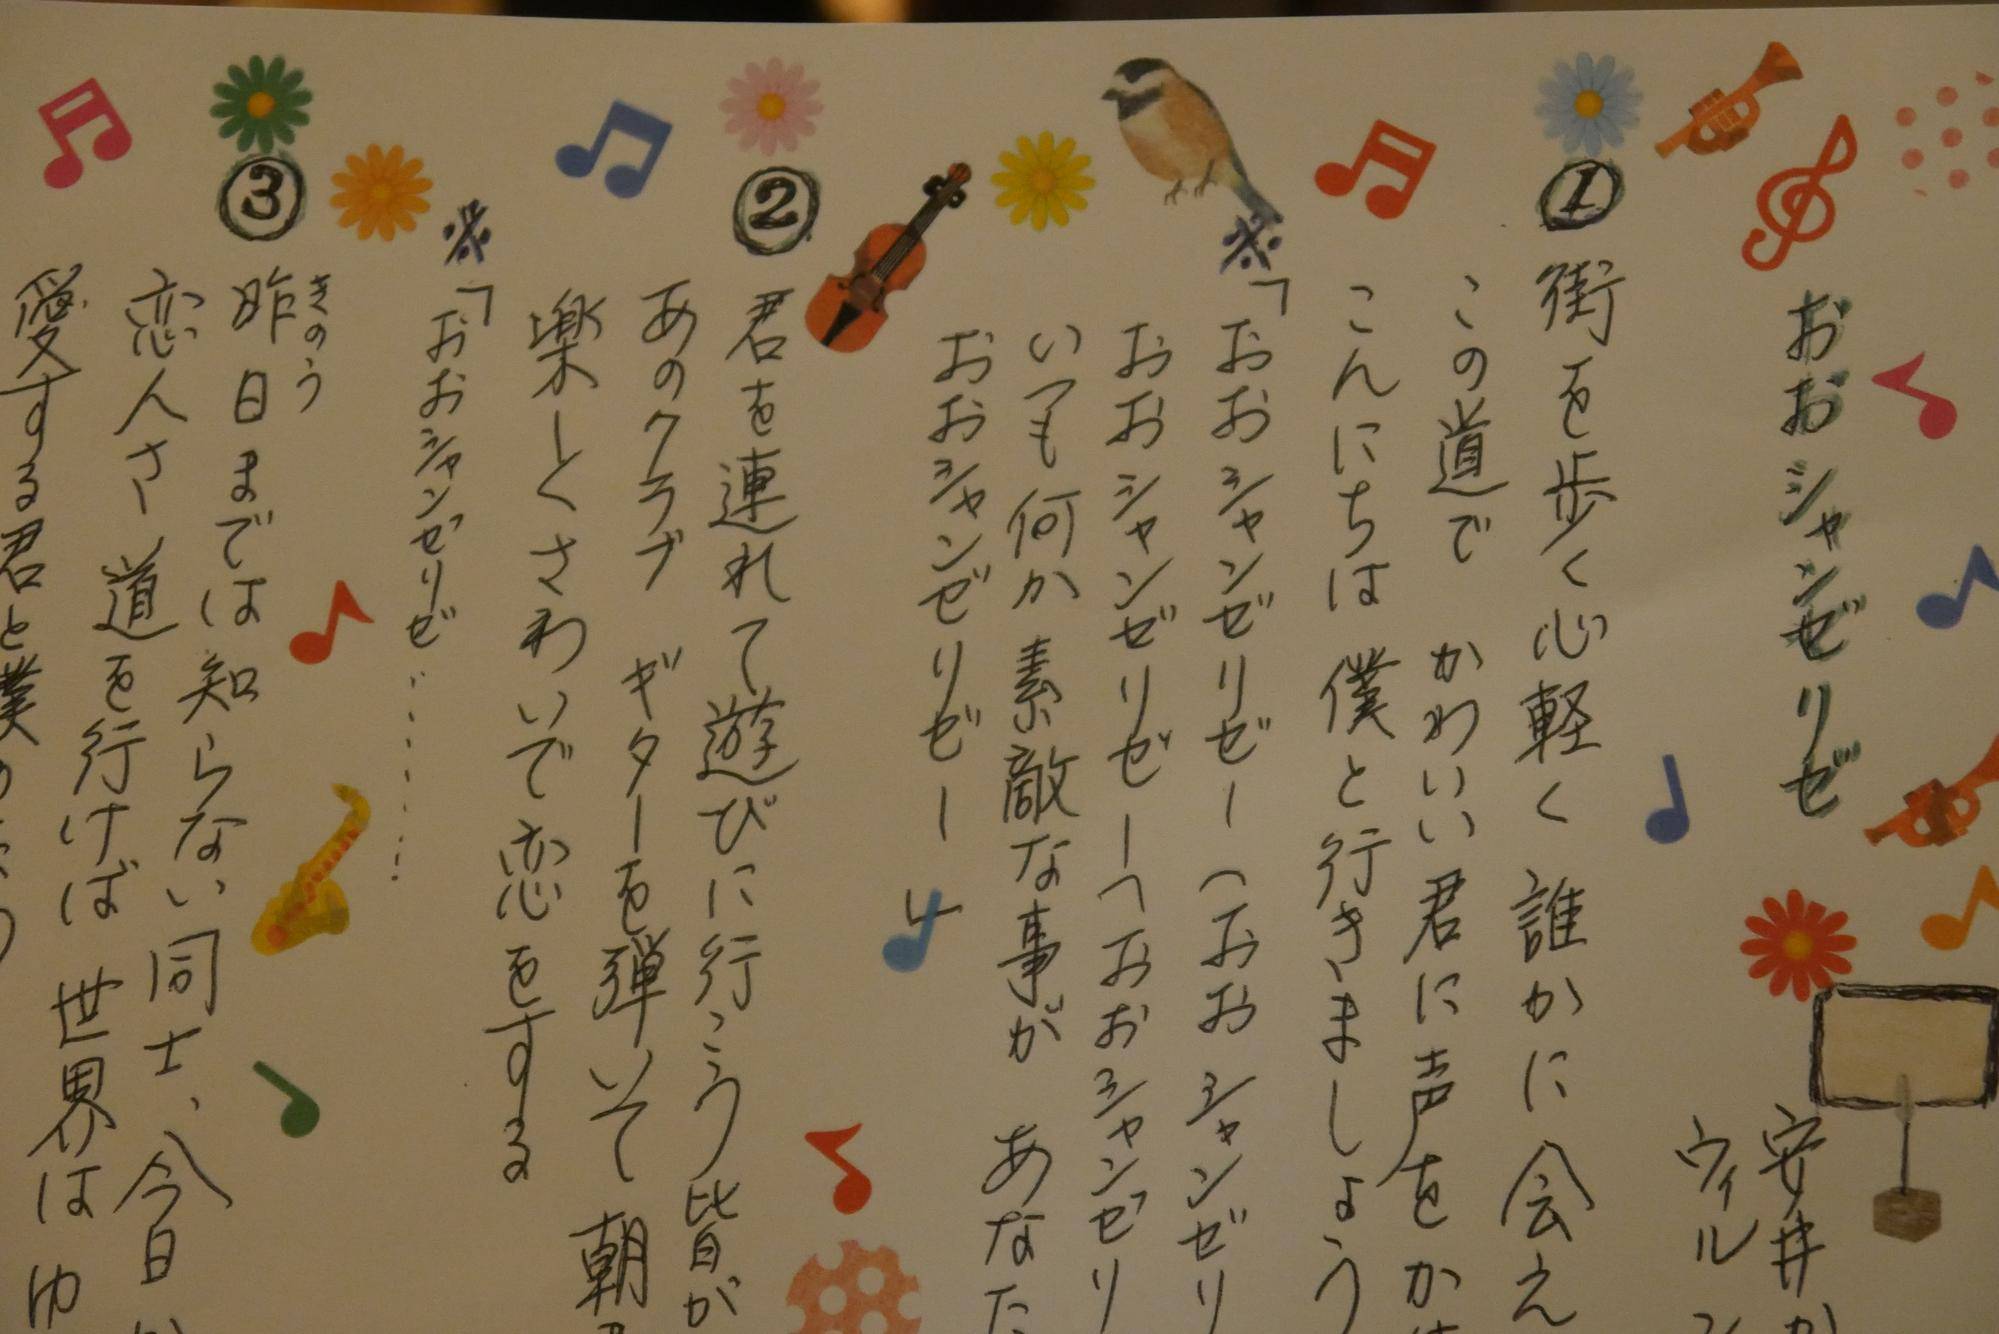 おおシャンゼリゼ
安井か
ウィル
①街を歩く心軽く 誰かに会え
この道で かわいい君に声をか
こんにちは 僕と行きましょう
※「おおシャンゼリゼー(おおシャンゼリ
おおシャンゼリゼー(おおシャンゼリ
いつも何か素敵な事が あなた
おおシャンゼリゼー」
②君を連れて遊びに行こう 皆が
あのクラブ ギターを弾いて 朝
楽しくさわいで恋をする
※「おおシャンゼリゼ……
③昨日までは知らない同士、今日か
きのう
恋人さー 道を行けば 世界はゆ
愛する君と僕の